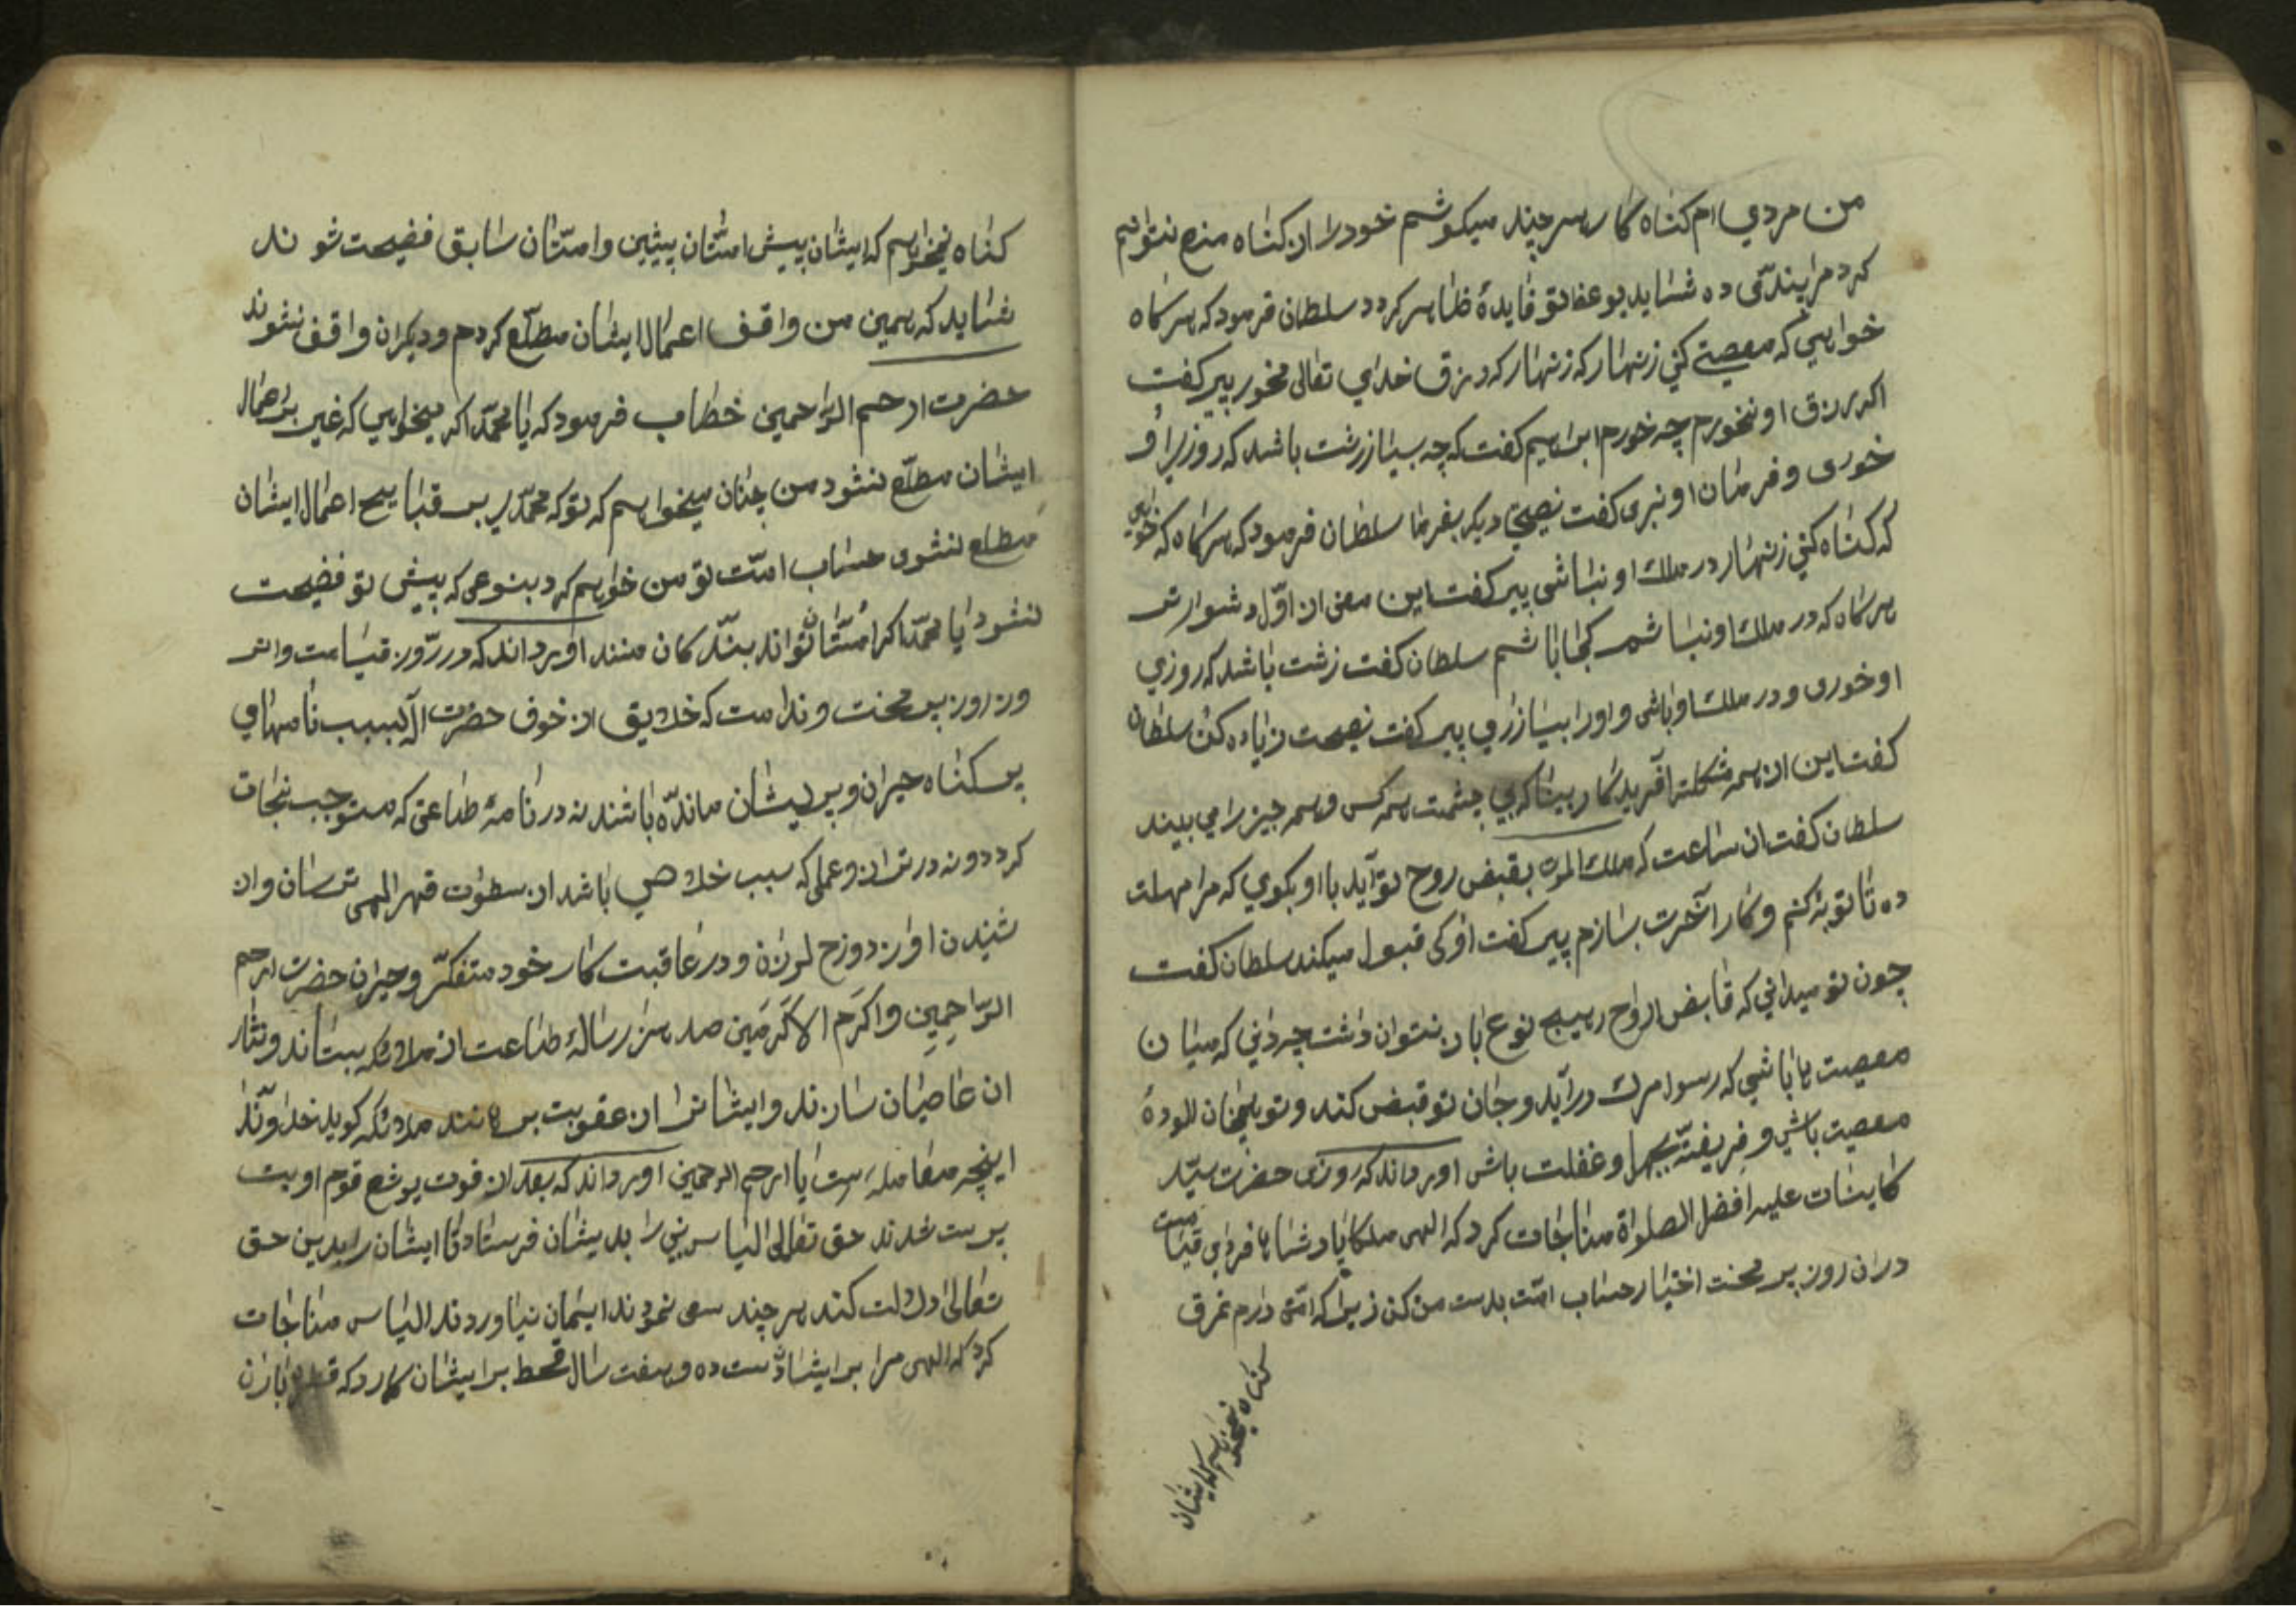 من مردی ام کناه کار هر چند میکوشم خود را از کناه منع نتوانم
کرد مرا پندی ده شاید بوعظ تو فایدهٔ ظاهر کردد سلطان فرمود که هر کاه
خواهی که معصیتے کنی زنهار که زنهار که رزق خدای تعالی مخور پیر کفت
اکر رزق او نخورم چه خورم ابراهیم کفت که چه بسیار زشت باشد که روزی او
خوری و فرمان او نبری کفت نصیحتی دیکر بفرما سلطان فرمود که هر کاه که خواهی
که کناه کنی زنهار در ملک او نباشی پیر کفت این معنی از اوّل دشوارتر
هر کاه که در ملک او نباشم کجا باشم سلطان کفت زشت باشد که روزی
او خوری و در ملک او باشی و او را بیازاری پیر کفت نصیحت زیاده کن سلطان
کفت این از همه مشکلتر آفرید کار بینا که بی چشمت همه کس و همه چیز را می بیند
سلطان کفت ان ساعت که ملک الموت بقبض روح تو آید با او بکوی که مرا مهلت
ده تا توبه کنم و کار آخرت بسازم پیر کفت او کی قبول میکند سلطان کفت
چون تو میدانی که قابض ارواح را بهیچ نوع باز نتوان داشت چه دانی که میان
معصیت ها باشی که رسول مرک در آید و جان تو قبض کند و تو همچنان الودهٔ
معصیت باشی و فریفتهٔ جهل و غفلت باشی اورده اند که روزی حضرت سیّد
کاینات علیه افضل الصلواة مناجات کرد که الهی ملکا پادشاها فردای قیامت
در ان روز پر محنت اختیار حساب امّت بدست من کن زیرا که امّتی دارم غرق
کناه نمیخواهم که ایشان
کناه نمیخواهم که ایشان پیش امتان پیشین و امتان سابق فضیحت شوند
شاید که همین من واقف اعمال ایشان مطلّع کردم و دیکران واقف نشوند
حضرت ارحم الرّاحمین خطاب فرمود که یا محمّد اکر میخواهی که غیر بر اعمال
ایشان مطلّع نشود من چنان میخواهم که تو که محمّدی بر قبایح اعمال ایشان
مطلع نشوی حساب امّت تو من خواهم کرد بنوعی که پیش تو فضیحت
نشود یا محمّد اکر امّتان تواند بندکان منند اورده اند که در روز قیامت و ان
روز پر محنت و ندامت که خلایق از خوف حضرت اله بسبب نامهای
پر کناه حیران و پریشان مانده باشند نه در نامهٔ طاعتی که مستوجب نجات
کردد و نه در ترازو عملی که سبب خلاصی باشد از سطوت قهر الهی ترسان و از
شنیدن اواز دوزخ لرزان و در عاقبت کار خود متفکّر و حیران حضرت ارحم
الرّاحمِینِ و اکرَم الاکرَمَین صد هزار رسالهٔ طاعت از ملائکه بستاند و نثار
ان عاصیان سازند و ایشانرا از عقوبت برهانند ملائکه کویند خداوندا
اینچه معامله است یا ارحم الرحمین اورده اند که بعد از فوت یوشع قوم او بت
پرست شدند حق تعالی الیاس نبی را بدیشان فرستاد تا ایشان را بدین حق
تعالی دلالت کند هر چند سعی نمودند ایمان نیاوردند الیاس مناجات
کرد که الهی مرا بر ایشان دست ده و هفت سال قحط بر ایشان کمارد که قطره باران